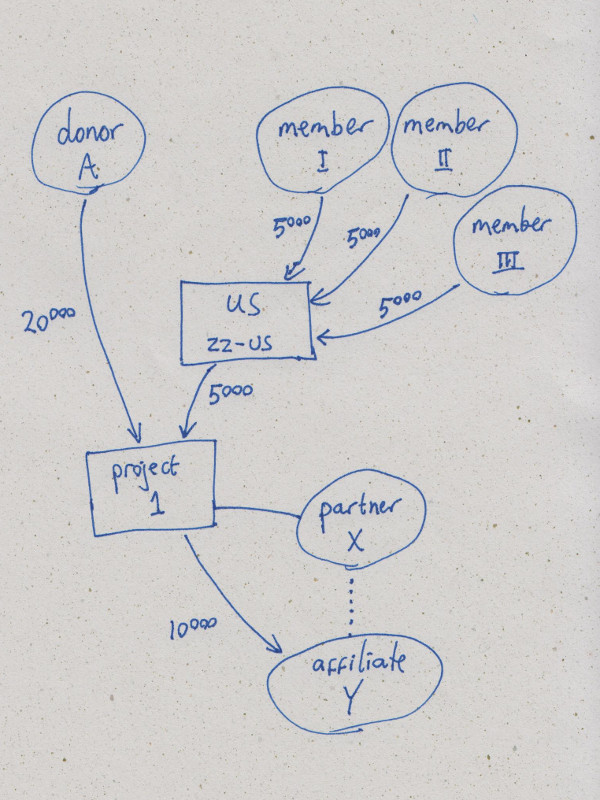 donor
A
member
I
member
II
member
III
5000
5000
5000
US
ZZ-US
20000
5000
project
1
partner
X
10000
affiliate
Y